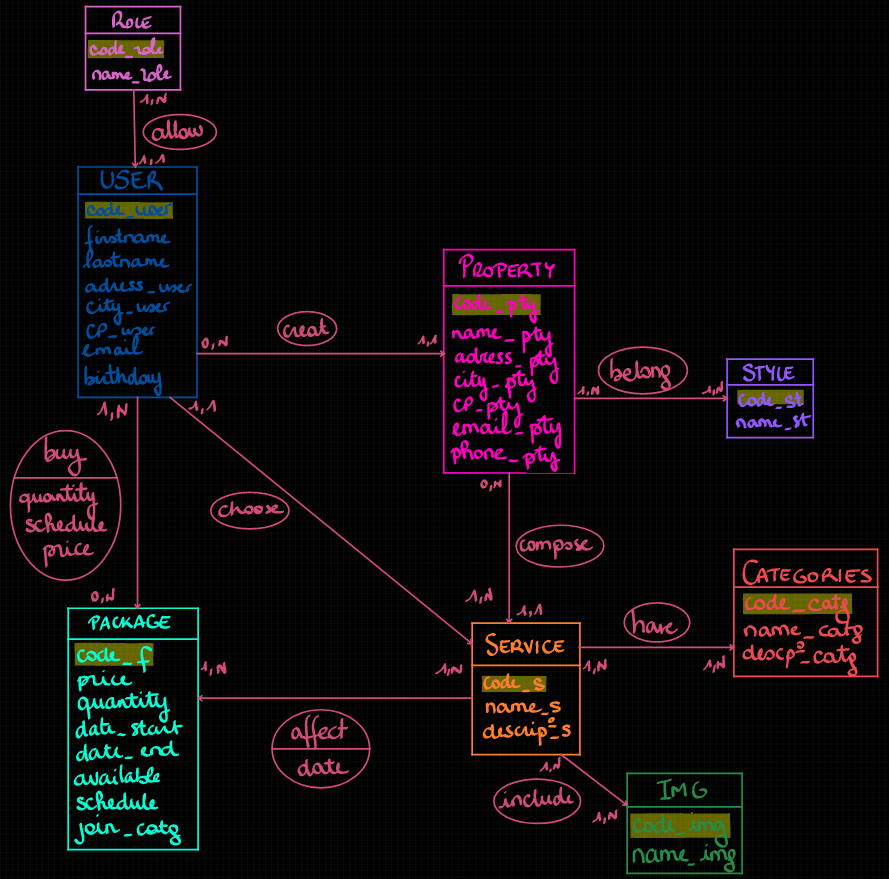 ROLE
code_role
name_role
1,N
allow
1,1
USER
code_user
firstname
lastname
adress_user
city_user
CP_user
email
birthday
0,N
creat
1,1
PROPERTY
code_pty
name_pty
adress_pty
city_pty
CP_pty
email_pty
phone_pty
1,N
belong
1,N
STYLE
code_st
name_st
1,N
1,1
buy
quantity
schedule
price
choose
0,N
compose
0,N
1,N
1,1
PACKAGE
code_f
price
quantity
date_start
date_end
available
schedule
join_catg
1,N
affect
date
1,N
SERVICE
code_s
name_s
descrip°_s
have
1,N
1,N
CATEGORIES
code_catg
name_catg
descp°_catg
1,N
include
1,N
IMG
code_img
name_img